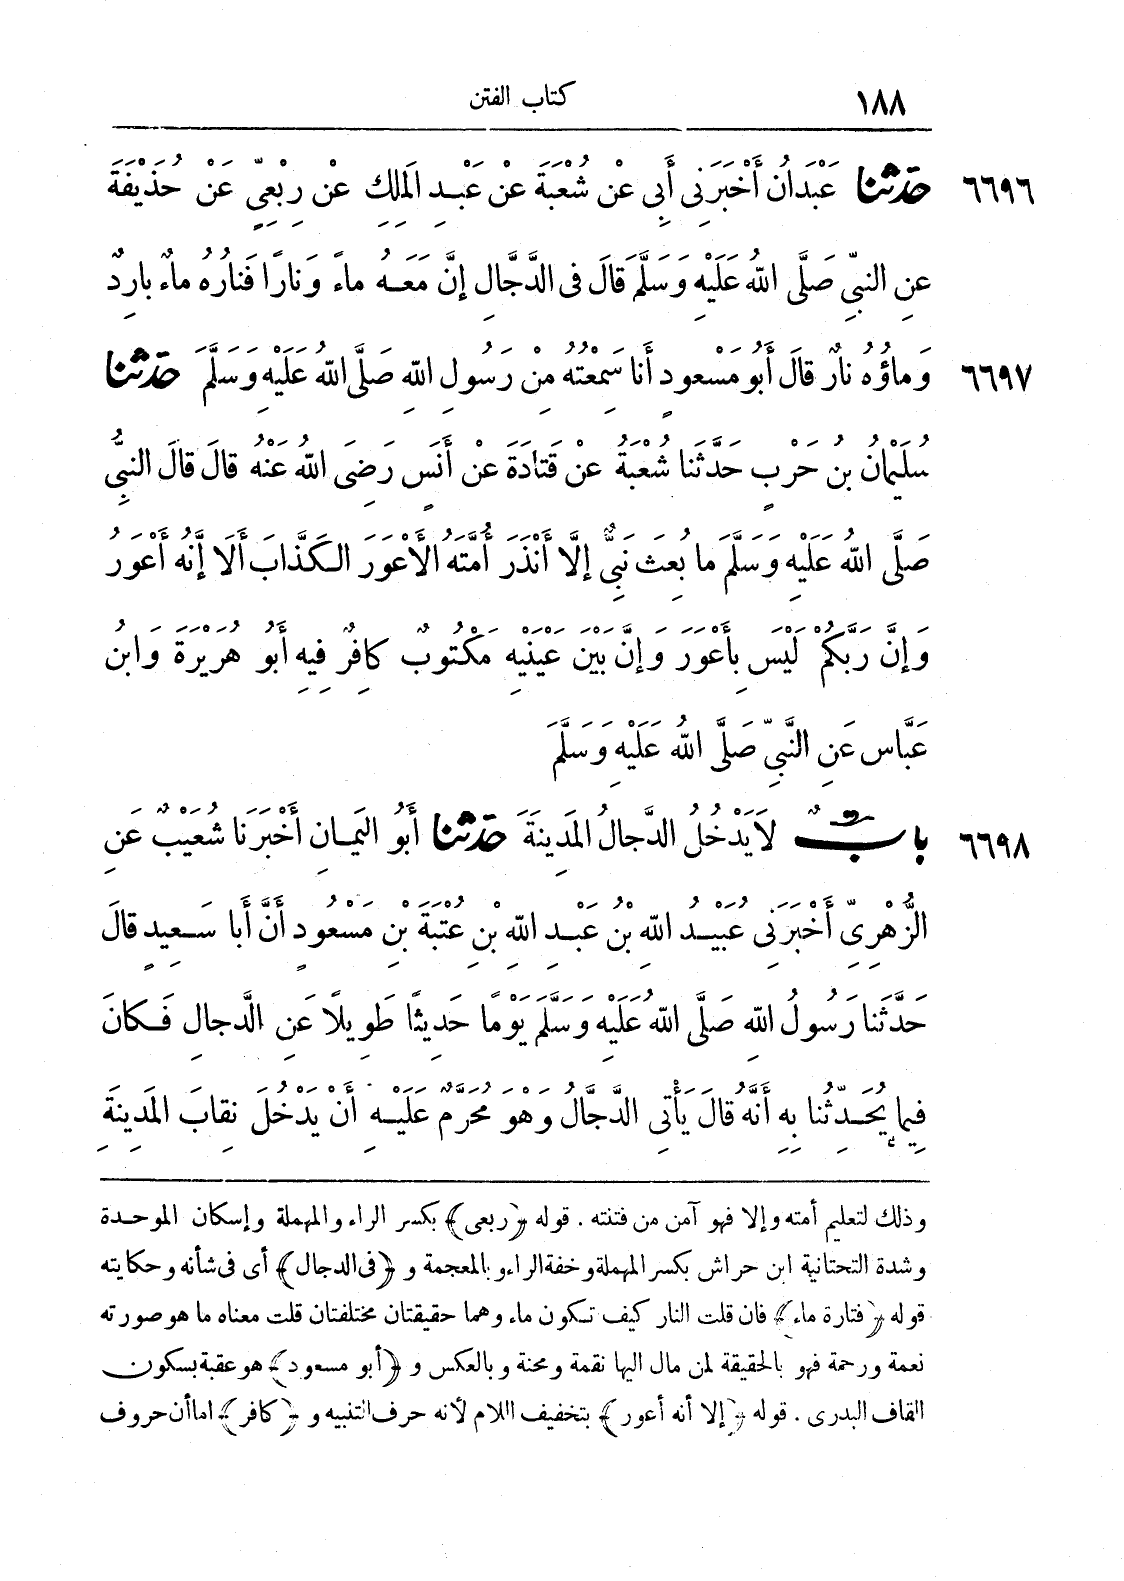 ١٨٨ كتاب الفتن
٦٦٩٦ حَدَّثَنَا عَبْدَانُ أَخْبَرَنِى أَبِى عَنْ شُعْبَةَ عَنْ عَبْدِ الْمَلِكِ عَنْ رِبْعِىٍّ عَنْ حُذَيْفَةَ
عَنِ النَّبِىِّ صَلَّى اللهُ عَلَيْهِ وَسَلَّمَ قَالَ فِى الدَّجَّالِ إِنَّ مَعَهُ مَاءً وَنَارًا فَنَارُهُ مَاءٌ بَارِدٌ
٦٦٩٧ وَمَاؤُهُ نَارٌ قَالَ أَبُو مَسْعُودٍ أَنَا سَمِعْتُهُ مِنْ رَسُولِ اللهِ صَلَّى اللهُ عَلَيْهِ وَسَلَّمَ حَدَّثَنَا
سُلَيْمَانُ بْنُ حَرْبٍ حَدَّثَنَا شُعْبَةُ عَنْ قَتَادَةَ عَنْ أَنَسٍ رَضِىَ اللهُ عَنْهُ قَالَ قَالَ النَّبِىُّ
صَلَّى اللهُ عَلَيْهِ وَسَلَّمَ مَا بُعِثَ نَبِىٌّ إِلَّا أَنْذَرَ أُمَّتَهُ الْأَعْوَرَ الْكَذَّابَ أَلَا إِنَّهُ أَعْوَرُ
وَإِنَّ رَبَّكُمْ لَيْسَ بِأَعْوَرَ وَإِنَّ بَيْنَ عَيْنَيْهِ مَكْتُوبٌ كَافِرٌ فِيهِ أَبُو هُرَيْرَةَ وَابْنُ
عَبَّاسٍ عَنِ النَّبِىِّ صَلَّى اللهُ عَلَيْهِ وَسَلَّمَ
٦٦٩٨ بَابٌ لَا يَدْخُلُ الدَّجَّالُ الْمَدِينَةَ حَدَّثَنَا أَبُو الْيَمَانِ أَخْبَرَنَا شُعَيْبٌ عَنِ
الزُّهْرِىِّ أَخْبَرَنِى عُبَيْدُ اللهِ بْنُ عَبْدِ اللهِ بْنِ عُتْبَةَ بْنِ مَسْعُودٍ أَنَّ أَبَا سَعِيدٍ قَالَ
حَدَّثَنَا رَسُولُ اللهِ صَلَّى اللهُ عَلَيْهِ وَسَلَّمَ يَوْمًا حَدِيثًا طَوِيلًا عَنِ الدَّجَّالِ فَكَانَ
فِيمَا يُحَدِّثُنَا بِهِ أَنَّهُ قَالَ يَأْتِى الدَّجَّالُ وَهُوَ مُحَرَّمٌ عَلَيْهِ أَنْ يَدْخُلَ نِقَابَ الْمَدِينَةِ
وذلك لتعليم أمته وإلا فهو آمن من فتنته . قوله ﴿ربعى﴾ بكسر الراء والمهملة وإسكان الموحدة
وشدة التحتانية ابن حراش بكسر المهملة وخفة الراء وبالمعجمة و ﴿فى الدجال﴾ أى فى شأنه وحكايته
قوله ﴿فناره ماء﴾ فان قلت النار كيف تكون ماء وهما حقيقتان مختلفتان قلت معناه ما هو صورته
نعمة ورحمة فهو بالحقيقة لمن مال اليها نقمة ومحنة وبالعكس و ﴿أبو مسعود﴾ هو عقبة بسكون
القاف البدرى . قوله ﴿إلا أنه أعور﴾ بتخفيف اللام لأنه حرف التنبيه و ﴿كافر﴾ اما أن حروف